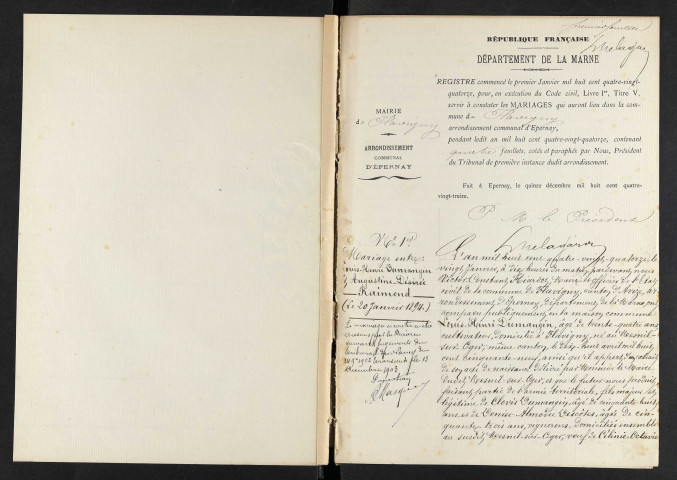 RÉPUBLIQUE FRANÇAISE
DÉPARTEMENT DE LA MARNE
REGISTRE commencé le premier Janvier mil huit cent quatre-vingt-
quatorze, pour, en exécution du Code civil, Livre Ier, Titre V,
servir à constater les MARIAGES qui auront lieu dans la com-
mune de Flavigny
arrondissement communal d'Epernay,
pendant ledit an mil huit cent quatre-vingt-quatorze, contenant
quatre feuillets, cotés et paraphés par Nous, Président
du Tribunal de première instance dudit arrondissement.
Fait à Epernay, le quinze décembre mil huit cent quatre-
vingt-treize.
P. M. le Président
MAIRIE
de Flavigny
ARRONDISSEMENT
COMMUNAL
D'ÉPERNAY
No 1er
Mariage entre
Louis-Henri Dumangin
& Augustine Désirée
Raimond
(Le 20 Janvier 1894.)
Le mariage a été
jugement du
tribunal
1903 transcrit le 13
Décembre 1903
L'an mil huit cent quatre-vingt-quatorze, le
vingt Janvier, à dix heures du matin, pardevant nous
Victor Constant, Maire et officier de l'Etat
civil de la commune de Flavigny, canton d'Avize, ar-
rondissement d'Epernay, département de la Marne, ont
comparu publiquement en la maison commune
Louis-Henri Dumangin, âgé de trente-quatre ans,
cultivateur, domicilié à Flavigny, né au Mesnil-
sur-Oger, même canton, le dix-huit avril mil huit
cent cinquante-neuf, ainsi qu'il appert d'un extrait
de son acte de naissance délivré par Monsieur le Maire
du dit Mesnil-sur-Oger, et que le futur nous produit,
faisant partie de l'armée territoriale, fils majeur et
légitime de Clovis Dumangin, âgé de cinquante huit
ans et de Denise Almodie Desbêtes, âgée de cin-
quante trois ans, vignerons, domiciliés ensemble
au susdit Mesnil-sur-Oger, veuf de Célinie-Octavie